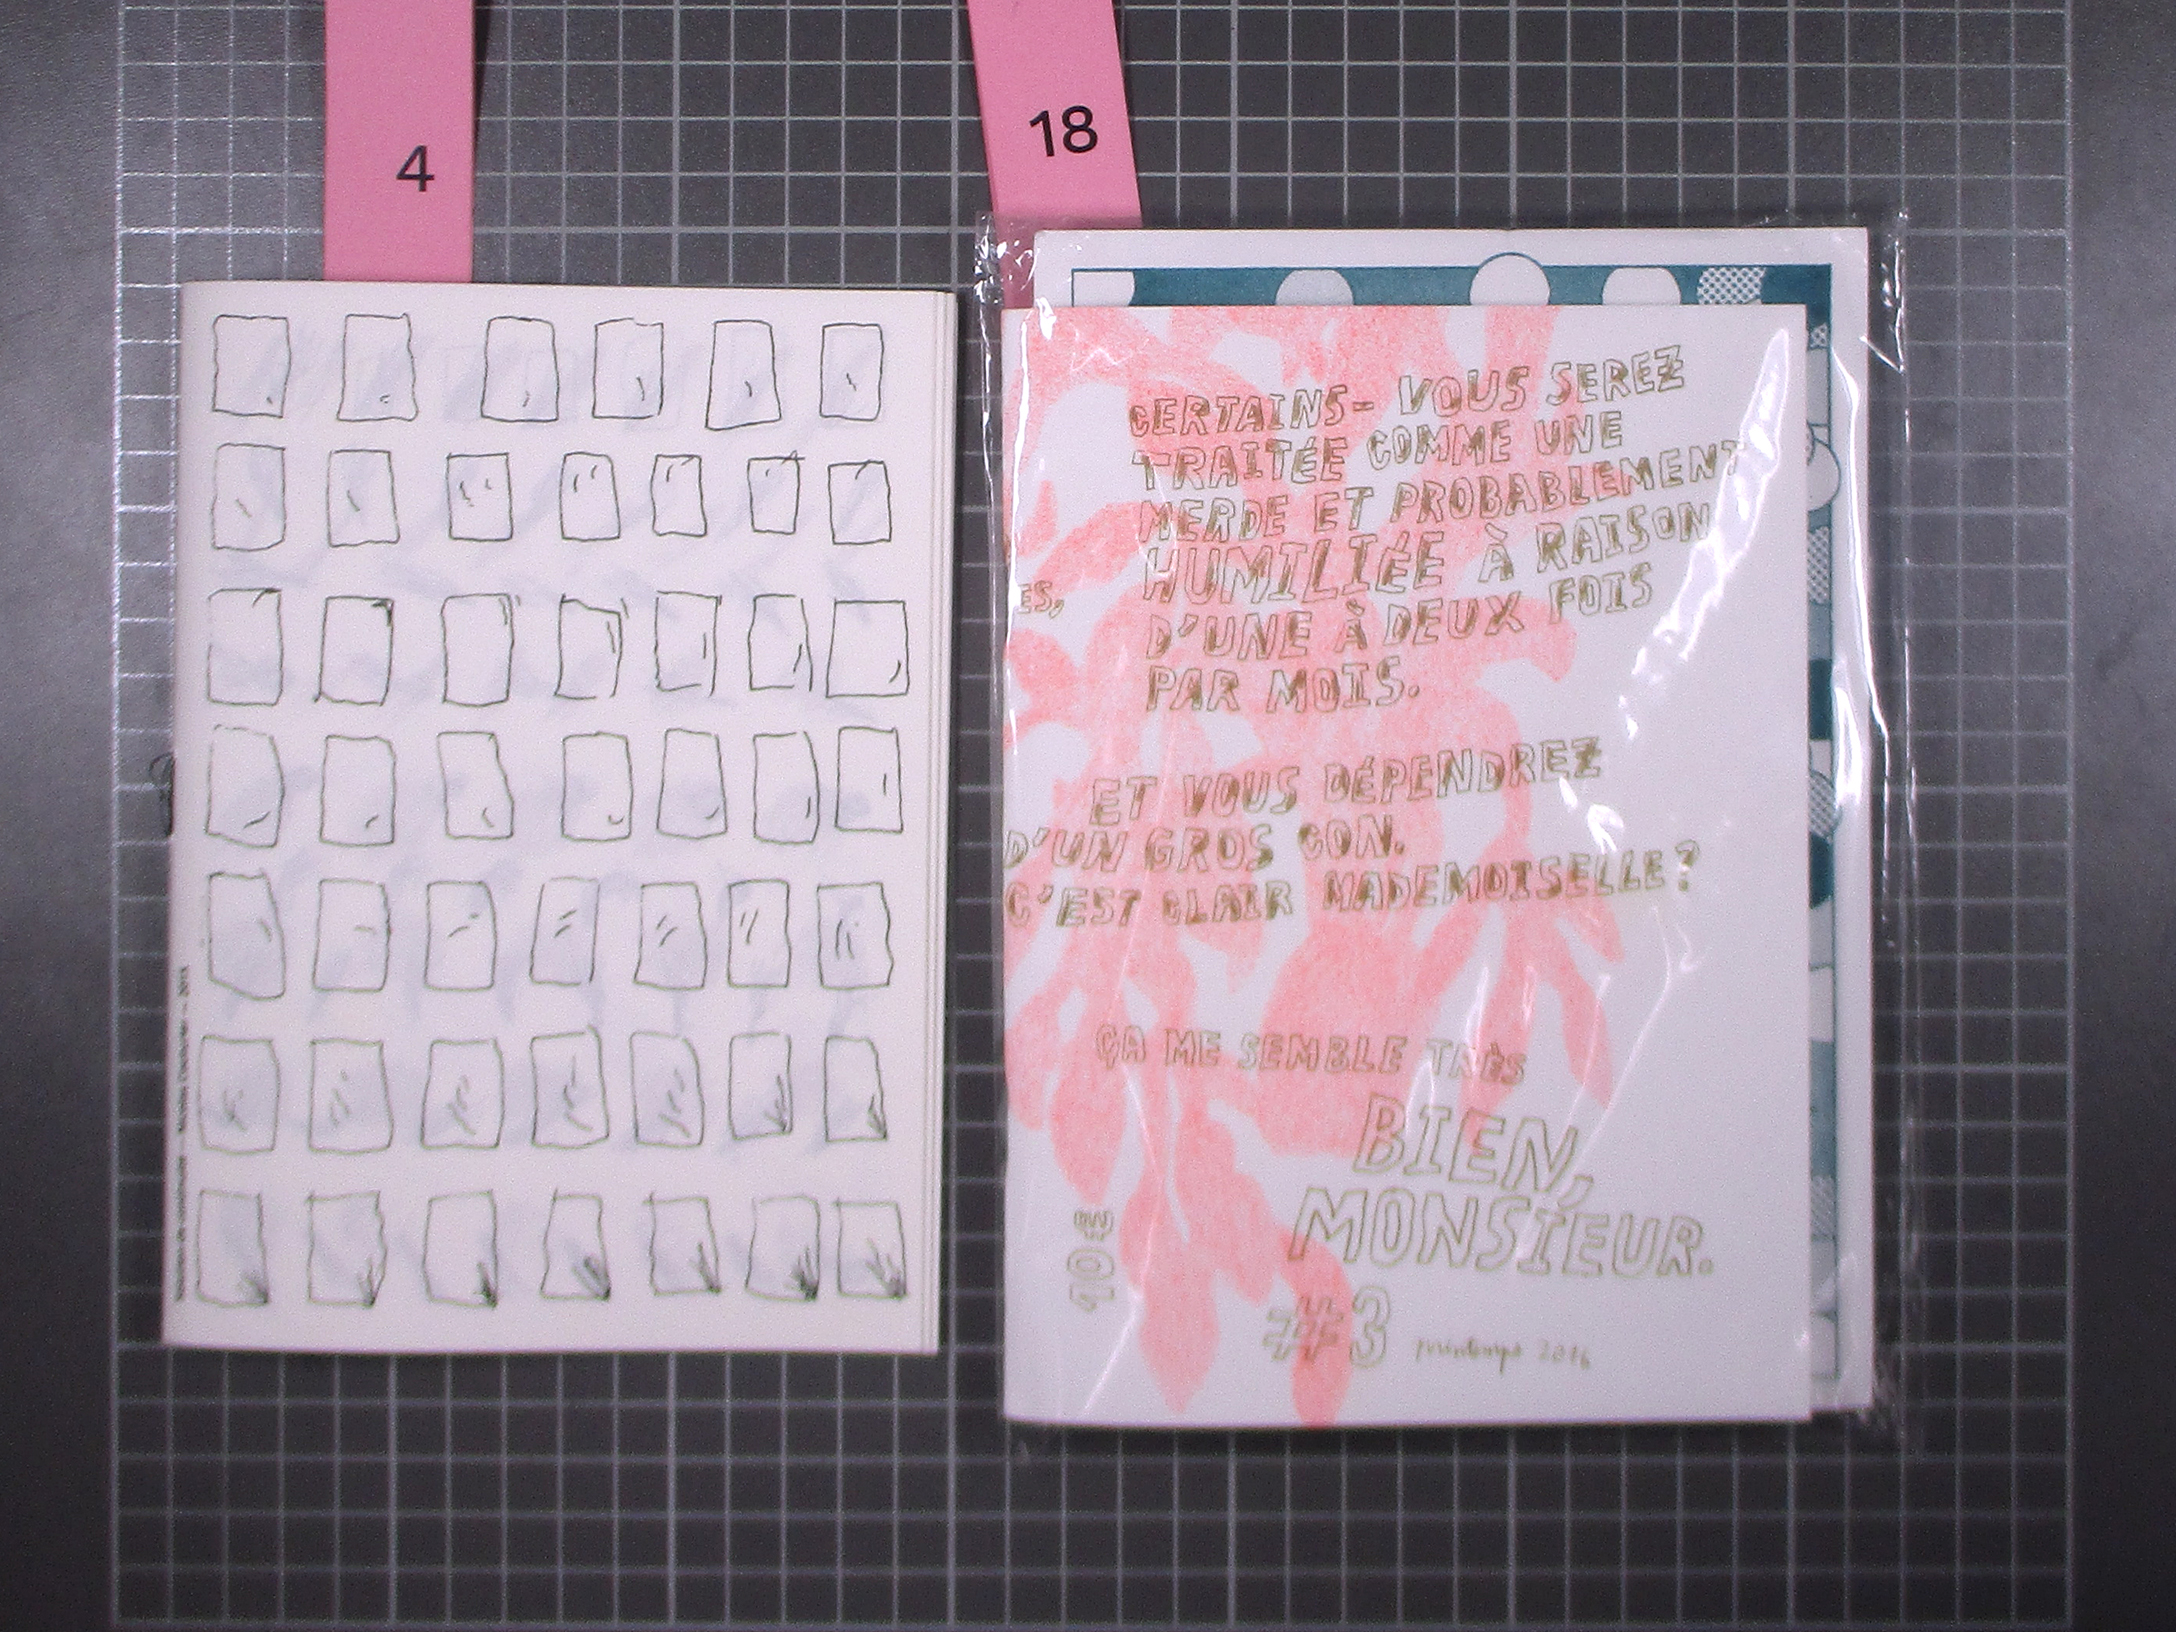 4
18
CERTAINS- VOUS SEREZ
TRAITÉE COMME UNE
MERDE ET PROBABLEMENT
HUMILIÉE À RAISON
ES,
D'UNE À DEUX FOIS
PAR MOIS.
ET VOUS DÉPENDREZ
D'UN GROS CON.
C'EST CLAIR MADEMOISELLE?
ÇA ME SEMBLE TRÈS
BIEN,
MONSIEUR.
10€
#3
printemps 2016